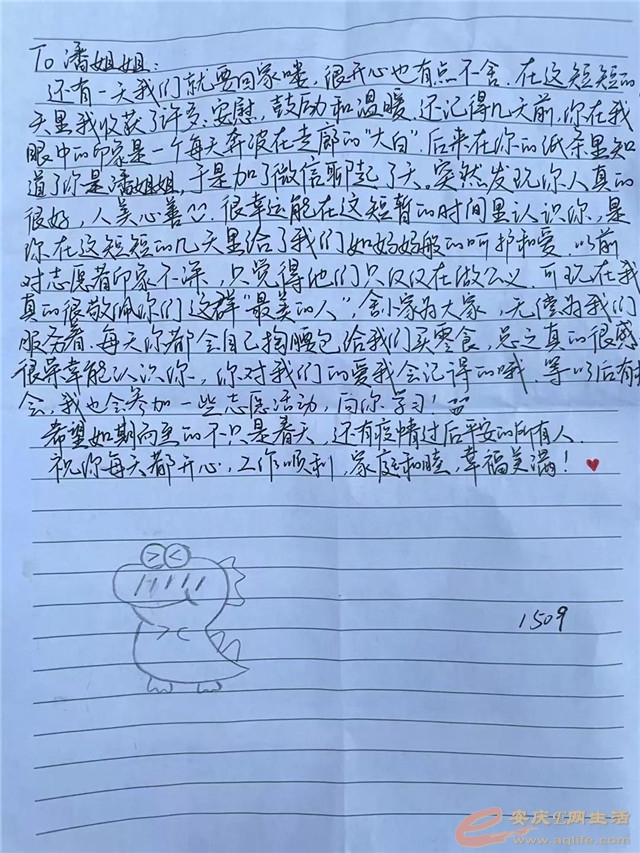 To 潘姐姐:
还有一天我们就要回家喽,很开心也有点不舍.在这短短的
天里我收获了许多安慰,鼓励和温暖.还记得几天前,你在我
眼中的印象是一个每天奔波在走廊的"大白",后来在你的纸条里知
道了你是潘姐姐,于是加了微信聊起了天。突然发现你人真的
很好,人美心善。很幸运能在这短暂的时间里认识你,是
你在这短短的几天里给了我们如妈妈般的呵护和爱.以前
对志愿者印象不深,只觉得他们只仅仅在做公义.可现在我
真的很敬佩你们这群"最美的人",舍小家为大家,无偿为我们
服务着.每天你都会自己掏腰包给我们买零食,总之真的很感
很荣幸能认识你,你对我们的爱我会记得的哦.等以后有
会,我也会参加一些志愿活动,向你学习!
希望如期而至的不只是春天,还有疫情过后平安的所有人.
祝你每天都开心,工作顺利,家庭和睦,幸福美满!
1509
安庆e网生活
www.aqlife.com